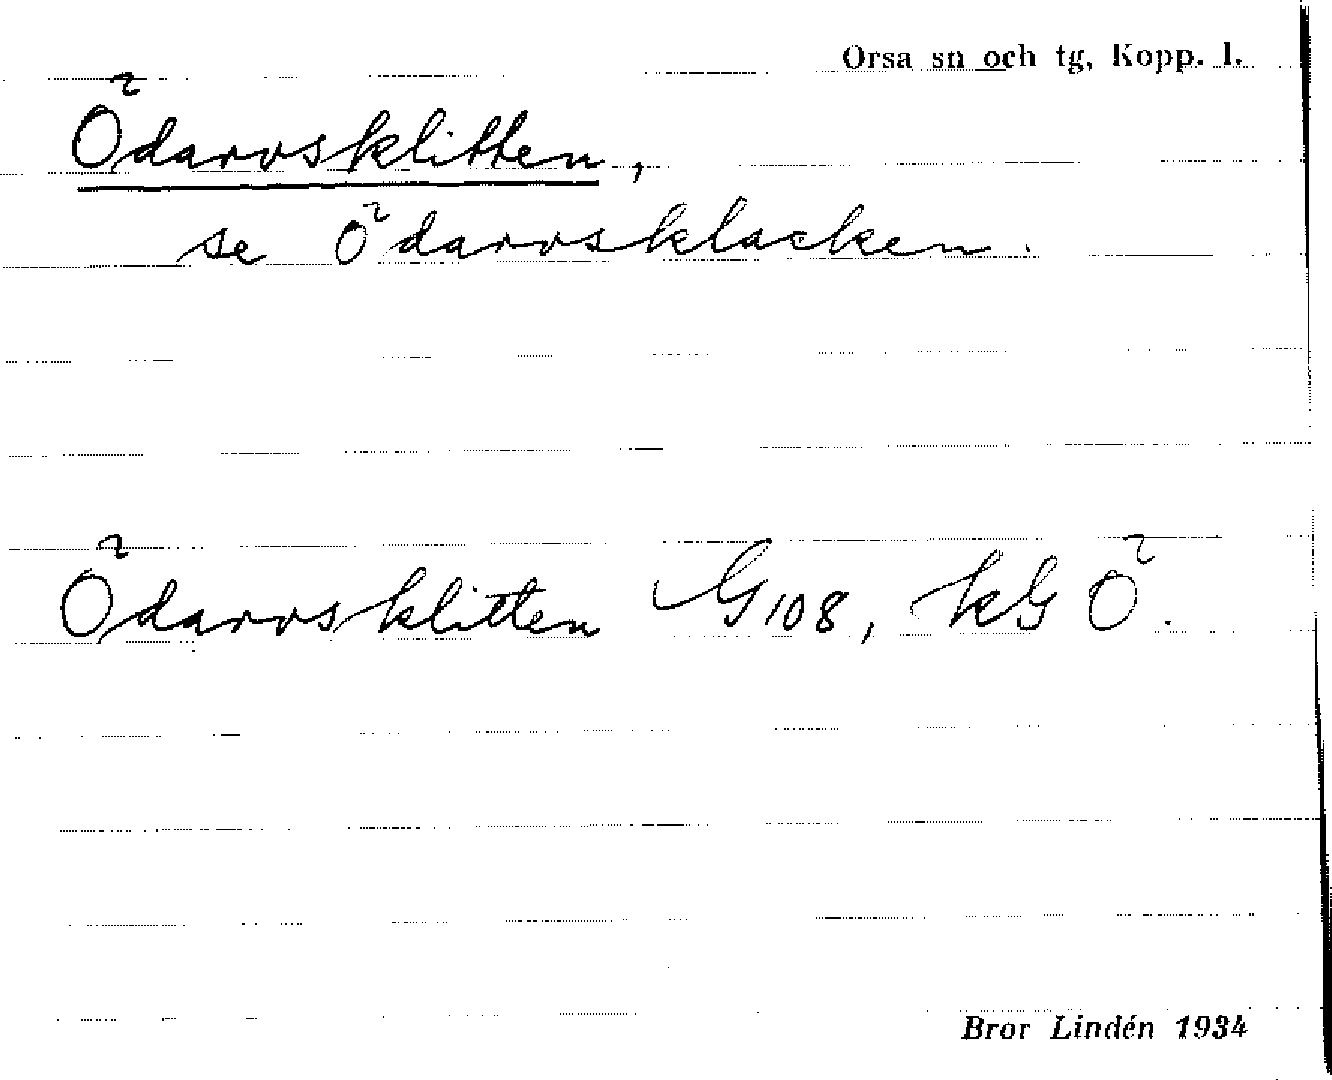 Orsa sn och tg, Kopp. l.
Ödarvsklitten,
se Ödarvsklacken.
Ödarvsklitten G108, kG Ö.
Bror Lindén 1934